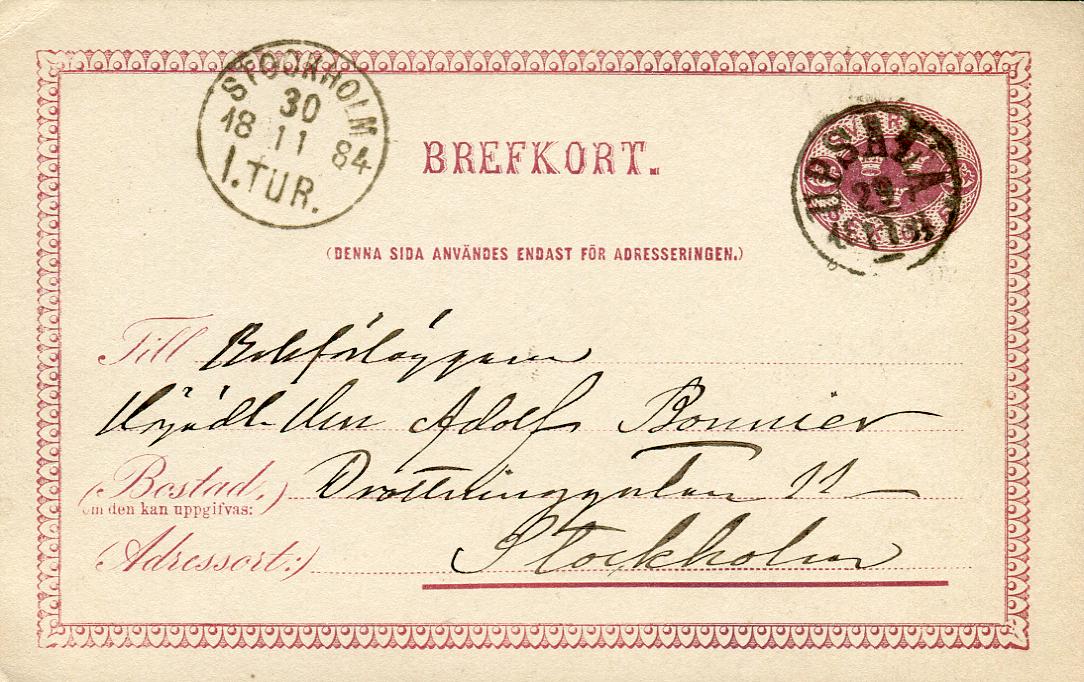 STOCKHOLM
30
18 11 84
1. TUR.
BREFKORT.
UPSALA
29
11
(DENNA SIDA ANVÄNDES ENDAST FÖR ADRESSERINGEN.)
Till Bokförläggaren
Adolf Bonnier
(Bostad,) Drottninggatan 11
om den kan uppgifvas:
(Adressort:) Stockholm